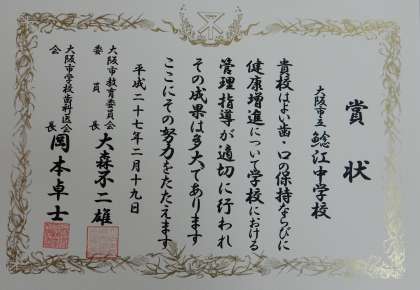 賞状
大阪市立鯰江中学校
貴校はよい歯・口の保持ならびに
健康増進について学校における
管理指導が適切に行われ
その成果は多大であります
ここにその努力をたたえます
平成二十七年二月十九日
大阪市教育委員会
委員長 大森不二雄
大阪市学校歯科医会
会長 岡本卓士